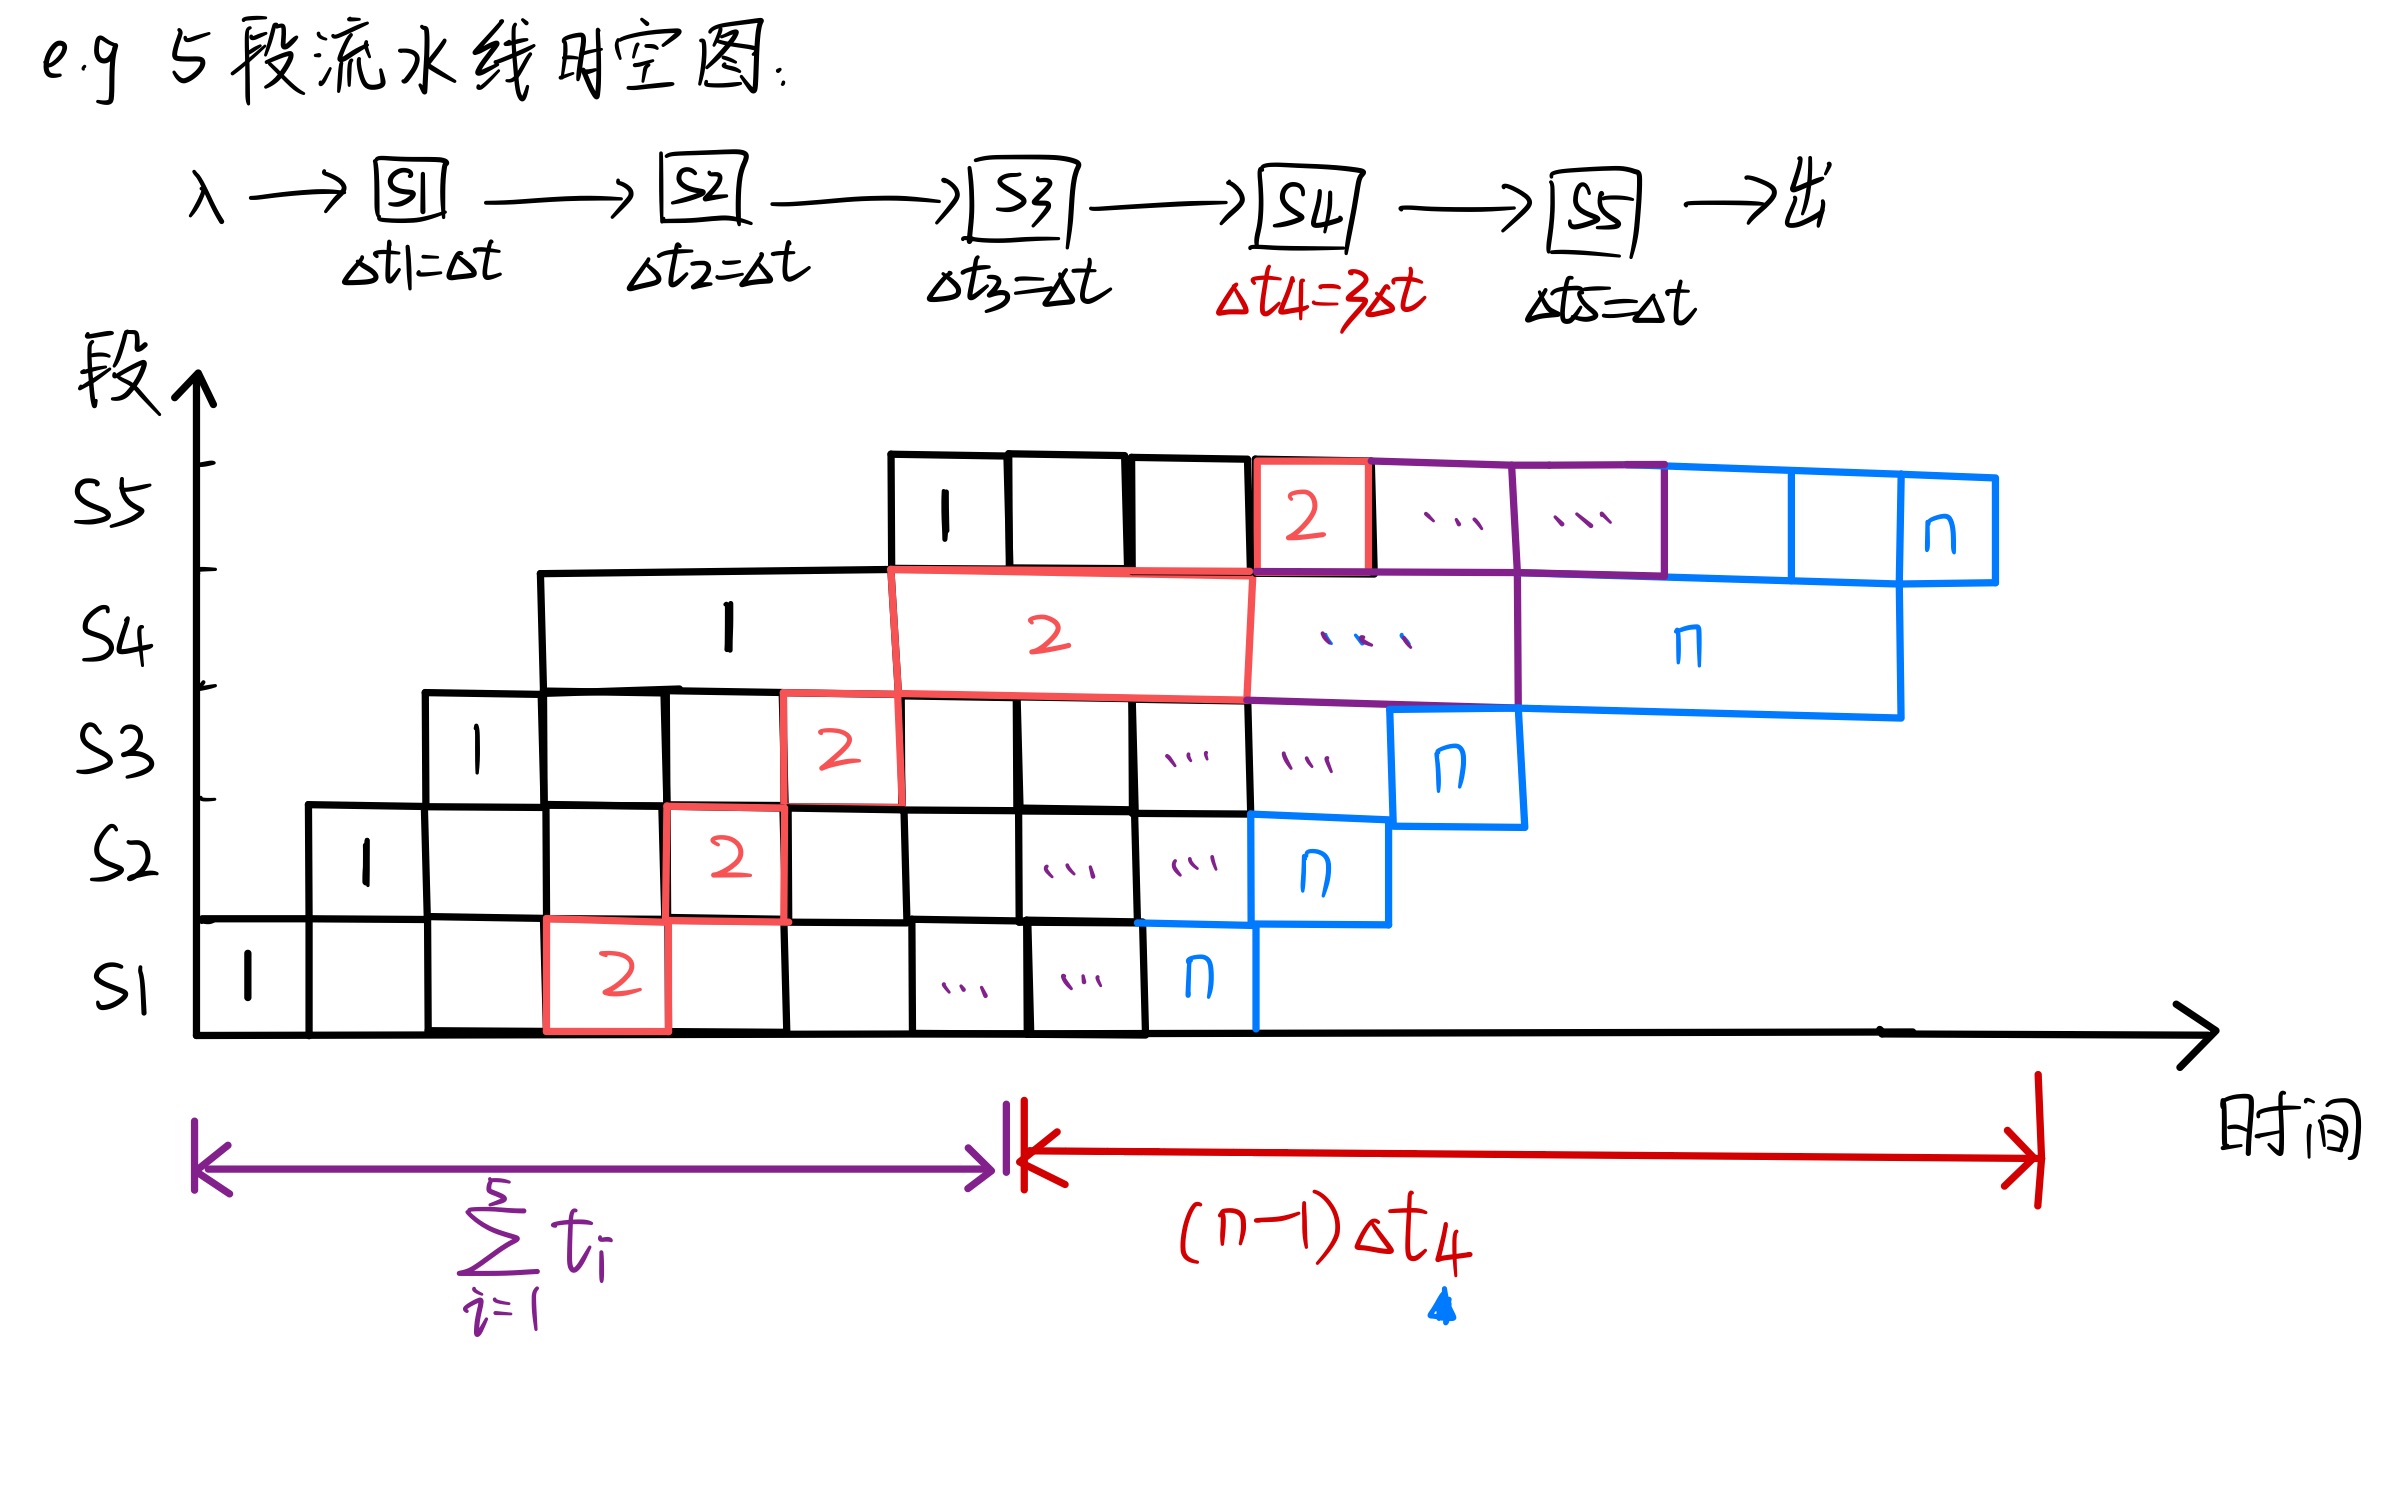 e.g 5段流水线时空图:
入 → S1 → S2 → S3 → S4 → S5 → 出
Δt1=Δt Δt2=Δt Δt3=Δt Δt4=3Δt Δt5=Δt
段
S5 1 2 ... ... n
S4 1 2 ... n
S3 1 2 ... ... n
S2 1 2 ... ... n
S1 1 2 ... ... n
时间
5
∑ ti
i=1
(n-1)Δt4